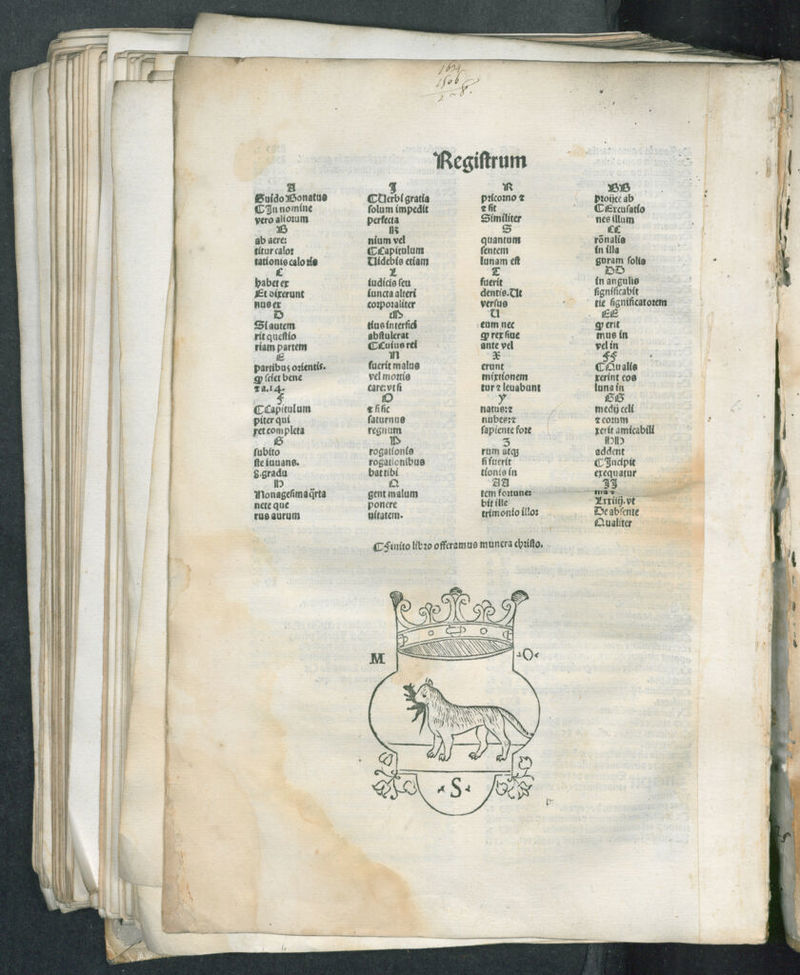 1634
1506
Registrum
A
Guido Bonatus
⸿In nomine
vero aliorum
B
ab aere:
titur calor
tationis caloris
C
habet ex
Et dixerunt
nus ex
D
Si autem
rit questio
riam partem
E
partibus orientis.
ꝙ sciet bene
⁊ a.14.
F
⸿Capitulum
piter qui
ret completa
G
subito
ste iuuans.
8.gradu
H
Nonagesima q̈rta
nete que
rus aurum
I
⸿Uerbi gratia
solum impedit
perfecta
K
nium vel
⸿Capitulum
Uidebis etiam
L
iudicis seu
iuncta alteri
corporaliter
M
tius interfici
abstulerat
⸿Cuius rei
N
fuerit malus
vel mortis
care:vt si
O
⁊ si sic
saturnus
regnum
P
rogationis
rogationibus
bat tibi
Q
gent malum
ponere
uitatem.
R
pricorno ⁊
⁊ sit
Similiter
S
quantum
sentem
lunam est
T
fuerit
dentis.Ut
versus
U
eum nec
ꝙ rex siue
ante vel
X
erunt
mixtionem
tur ⁊ leuabunt
Y
natus:⁊
nubes:⁊
sapiente forte
Z
rum atqꝫ
si fuerit
tionis in
AA
tem fortune:
bit ille
trimonio illo:
BB
proijce ab
⸿Excusatio
nes illum
CC
rōnalis
in illa
guram solis
DD
in angulis
significabit
rie significatorem
EE
ꝙ erit
mus in
vel in
FF
⸿Qualis
xerint eos
luna in
GG
medij celi
⁊ eorum
xerit amicabili
HH
addent
⸿Incipit
exequatur
II
ma ⁊
Lxxiiij.vt
De absente
Qualiter
⸿Finito libro offeramus munera christo.
M O
S